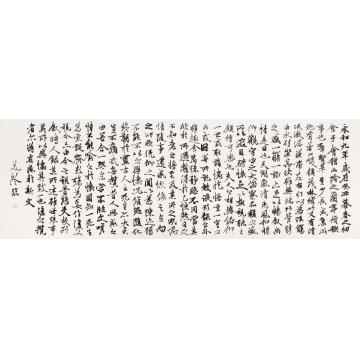 永和九年歲在癸丑暮春之初
會于會稽山陰之蘭亭脩禊
事也群賢畢至少長咸集此
地有崇山峻領茂林脩竹又有清
流激湍映帶左右引以為流觴
曲水列坐其次雖無絲竹管弦
之盛一觴一詠亦足以暢敘幽
情是日也天朗氣清惠風和暢
仰觀宇宙之大俯察品類之盛
所以遊目騁懷足以極視聽之
娛信可樂也夫人之相與俯仰
一世或取諸懷抱悟言一室之
內或因寄所託放浪形骸之外
雖趣舍萬殊靜躁不同當其
欣於所遇暫得於己快然自足不
知老之將至及其所之既惓
情隨事遷感慨係之矣向
之所欣俛仰之間以為陳迹猶
不能不以之興懷況脩短隨化
終期於盡古人云死生亦大矣
豈不痛哉每攬昔人興感之
由若合一契未嘗不臨文嗟
悼不能喻之於懷固知一死生
為虛誕齊彭殤為妄作後之
視今亦由今之視昔悲夫故列
敘時人錄其所述雖世殊事
異所以興懷其致一也後之攬
者亦將有感於斯文